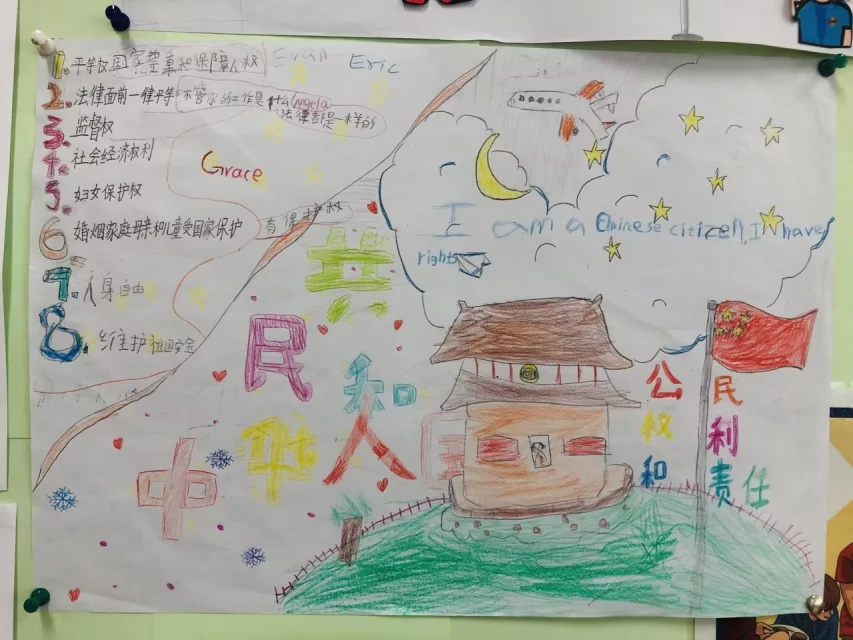 1. 平等权 国家尊重和保障人权
Evan Eric
2. 法律面前一律平等 不管你的工作是什么
Angela
法律都是一样的
3. 监督权
4. 社会经济权利
Grace
5. 妇女保护权
6. 婚烟家庭母亲和儿童受国家保护 有保护权
7. 人身自由
8. 维护祖国安全
I am a Chinese citizen, I have
rights
中华人民共和国
公民
权利
和责任